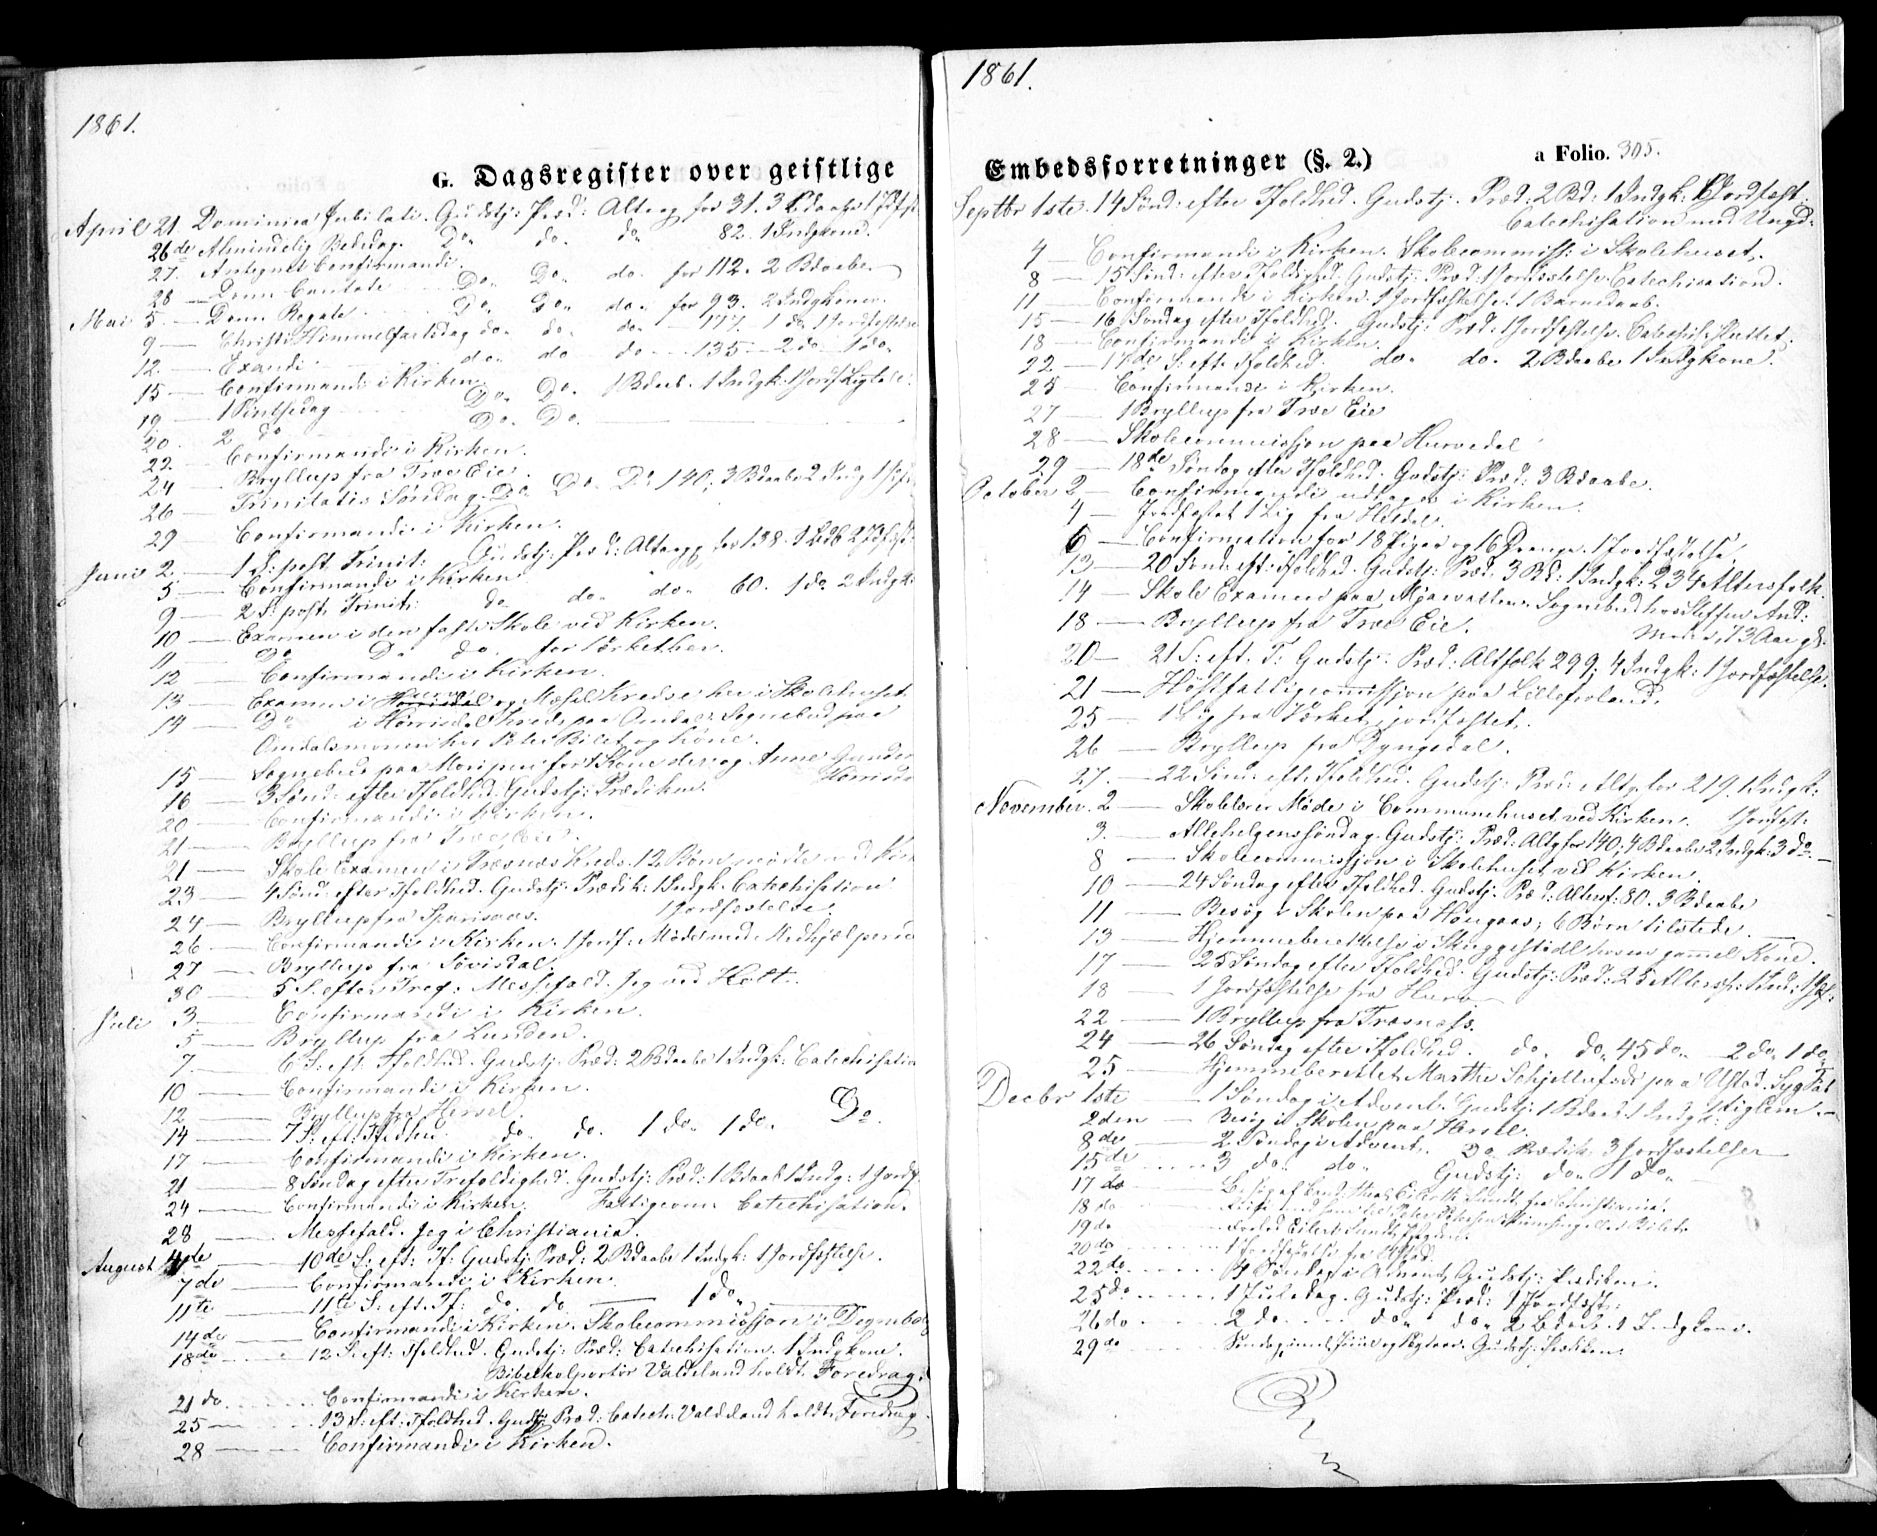 1861.
G. Dagsregister over geistlige
April 21. Dominica Jubilati. Gudstj: Præd: Alterg for 31. 3 Bdaabe 1
26de Almindelig Bededag. Do. do. do. 82. 1 Indgkone.
27. Antegnet Confirmandi.
28 — Domn Cantate Do. Do. do. for 112. 2 Bdaabe.
Mai 5. — Domn Rogate. Do. Do. do. for 93. 2 Indgkoner.
9 — Christi Himmelfartsdag do. do. do. — 177. 1 do. 1 Jordfæstelse
12. — Exaudi do. do do — 135 — 2 do. 1 do.
15 — Confirmandi i Kirken.
19. — 1 Pintsedag Do. Do. 1 Bdaab. 1 Indgk: 1 Jordf
20. — 2 do Do. Do.
22. — Confirmandi i Kirken.
24 — Bryllup fra Træe Eie.
26 — Trinitatis Søndag. Do. Do. Do 140, 3 Bdaabe 2 Indg 1
29 — Confirmandi i Kirken.
Juni 2. — 1 S: post. Trinit: Gudstj: Præd: Alterg for 138.
5 — Confirmandi i Kirken
9 — 2 S: post. Trinit: do do. do. 60. 1 do. 2 Indgk:
10 — Examen i den faste Skole ved Kirken.
11 — Do Do do. for
12 — Confirmandi i Kirken.
13 — Examen i og Mæsel Kreds her i Skolehuset.
14 — Do i Hørrisdal Kreds paa Omdal. Sognebud paa
Omdalsmonen hos og Kone.
15 — Sognebud paa for 1 Kone der og Anne Gunder
16 — 3 Sønd: efter Tfoldhed. Gudstj: Prædiken.
20 — Confirmandi i Kirken.
21 — Bryllup fra
21 — Skole Examen i Træsnæs Kreds. 12 Børn mødte ved Kirk
23 — 4 Sønd: efter Tfoldhed. Gudstj: Prædik: 1 Indgk. Catechisation
1 Jordfæstelse.
24 — Bryllup fra
26 — Confirmandi i Kirken. 1 Jordf: Møde med Medhjælperne
27 — Bryllup fra Søvisdal.
30 — 5 S. efter Tref: Messefald. Jeg ved Holt.
Juli 3. — Confirmandi i Kirken.
5 — Bryllup fra Lunden.
7. — 6 S: eft. Tfoldhed. Gudstj: Præd: 2 Bdaabe 1 Indgk: Catechisation
10 — Confirmandi i Kirken.
12 — Bryllup fra
14 — 7 S: eft: Tfoldhed. do. do. 1 do. 1 do. Do.
17 — Confirmandi i Kirken.
21 — 8 Søndag efter Trefoldighed. Gudstj: Præd: 1 Bdaab 1 Indg: 1 Jordf
24 — Confirmandi i Kirken. Fattigcom: Catechisation.
28 — Messefald. Jeg i Christiania.
August 4de — 10de S: eft: Tf: Gudstj: Præd: 2 Bdaabe 1 Indgk: 1 Jordfæstelse.
7de — Confirmandi i Kirken.
11te — 11te S: eft. Tf: do. do. — 1 do.
14de — Confirmandi i Kirken. Skolecommissjon i
18de — 12 S: eft: Tfoldhed. Gudstj: Præd: Catechisation. 1 Indgkone.
Bibelkolportør Valdeland holdt Foredrag.
21 do. Confirmandi i Kirken.
25 — 13 S: eft: Tfoldhed. Gudstj: Præd: Catech: Valdeland holdt Foredrag.
28 — Confirmandi i Kirken.
1861.
Embedsforretninger (§. 2.)
a Folio. 305.
Septbr 1ste. 14 Sønd: efter Tfoldhed. Gudstj. Præd: 2 Bd: 1 Indgk: 1 Jordfæst.
Catechisation med Ungd:
4 — Confirmandi i Kirken. Skolecommiss: i Skolehuset.
8 — 15 Sønd: efter Tfoldighed. Gudstj. Præd. 1 Jordfæstelse. Catechisation.
11 — Confirmandi i Kirken. 1 Jordfæstelse. 1 Barnedaab.
15 — 16 Søndag efter Tfoldhed. Gudstj: Præd: 1 Jordfæstelse. Catechis: sluttet.
18 — Confirmandi i Kirken.
22 — 17de S: eft. Tfoldhed do. do. 2 Bdaabe 1 Indgkone.
25 — Confirmandi i Kirken.
27 — 1 Bryllup fra Træe Eie
28 — Skolecommissjon paa Hurvedal
29 — 18de Søndag efter Tfoldhed. Gudstj: Præd: 3 Bdaabe.
October 2 — Confirmandi udtages i Kirken.
4 — Jordfæstet 1 Lig fra
6 — Confirmation for 18 Piger og 16 Drenge. 1 Jordfæstelse.
13 — 20 Sønd: eft: Tfoldhed. Gudstj: Præd. 3 Bd: 1 Indgk: 234 Altersfolk.
14 — Skole Examen paa Mjaavatten. Sognebud hos Steffen And:
Moen, 73 Aar gl.
18 — Bryllup fra Træe Eie.
20 — 21 S: eft. T: Gudstj: Præd: Altfolk 299. 4 Indgk: 1 Jordfæstelse.
21 — Høstfattigcomissjon paa Lillefroland.
25 — 1 Lig fra jordfæstet.
26 — Bryllup fra
27. — 22 Sønd: efter Tfoldhed. Gudstj: Præd: Altg for 219. 1 Indgk:
1 Jordfæst.
November 2 — Skolelærer Møde i Communehuset ved Kirken.
3. — Allehelgens Søndag. Gudstj: Præd: Altg for 140. 4 Bdaabe 2 Indgk: 3 do.
8 — Skolecommissjon i Skolehuset ved Kirken.
10 — 24 Søndag efter Tfoldhed. Gudstj. Præd: Altersf: 80. 3 Bdaabe
11 — Besøg i Skolen paa Hougaas; 6 Børn tilstede.
13 — Hjemmeberettelse i Skuggestøl hvor gammel Kone.
17 — 25 Søndag efter Tfoldhed. Gudstj: Præd: 25 Altersf: 1 Ind: 1 Jdf:
18 — 1 Jordfæstelse fra
22 — 1 Bryllup fra Træsnæss.
24 — 26 Søndag efter Tfoldhed. do. do. 45 do. 2 do. 1 do.
25 — Hjemmeberettet Marthe paa Ustad.
Decbr 1ste — 1 Søndag i Advent. Gudstj: 1 Bdaab 1 Indgk:
2den — Besøg i Skolen paa
8de — 2. Søndag i Advent. Do. Prædik. 3 Jordfæstelser
15de 3 do do. Gudstj: do. 1 do.
17 do Besøg af Eilert Sundt fra Christiania.
18 do
19 do
20 do 1 Jordfæstelse fra
22 do. 4 Søndag i Advent. Gudstj: Prædiken.
25 do 1 Juledag. Gudstj: Præd: 1 Jordfæst:
26 do 2 do. do. do. 2 Bdaab. 1 Indgkone.
29 do Søndag mell: Juul og Nytaar. Gudstj: Prædiken.